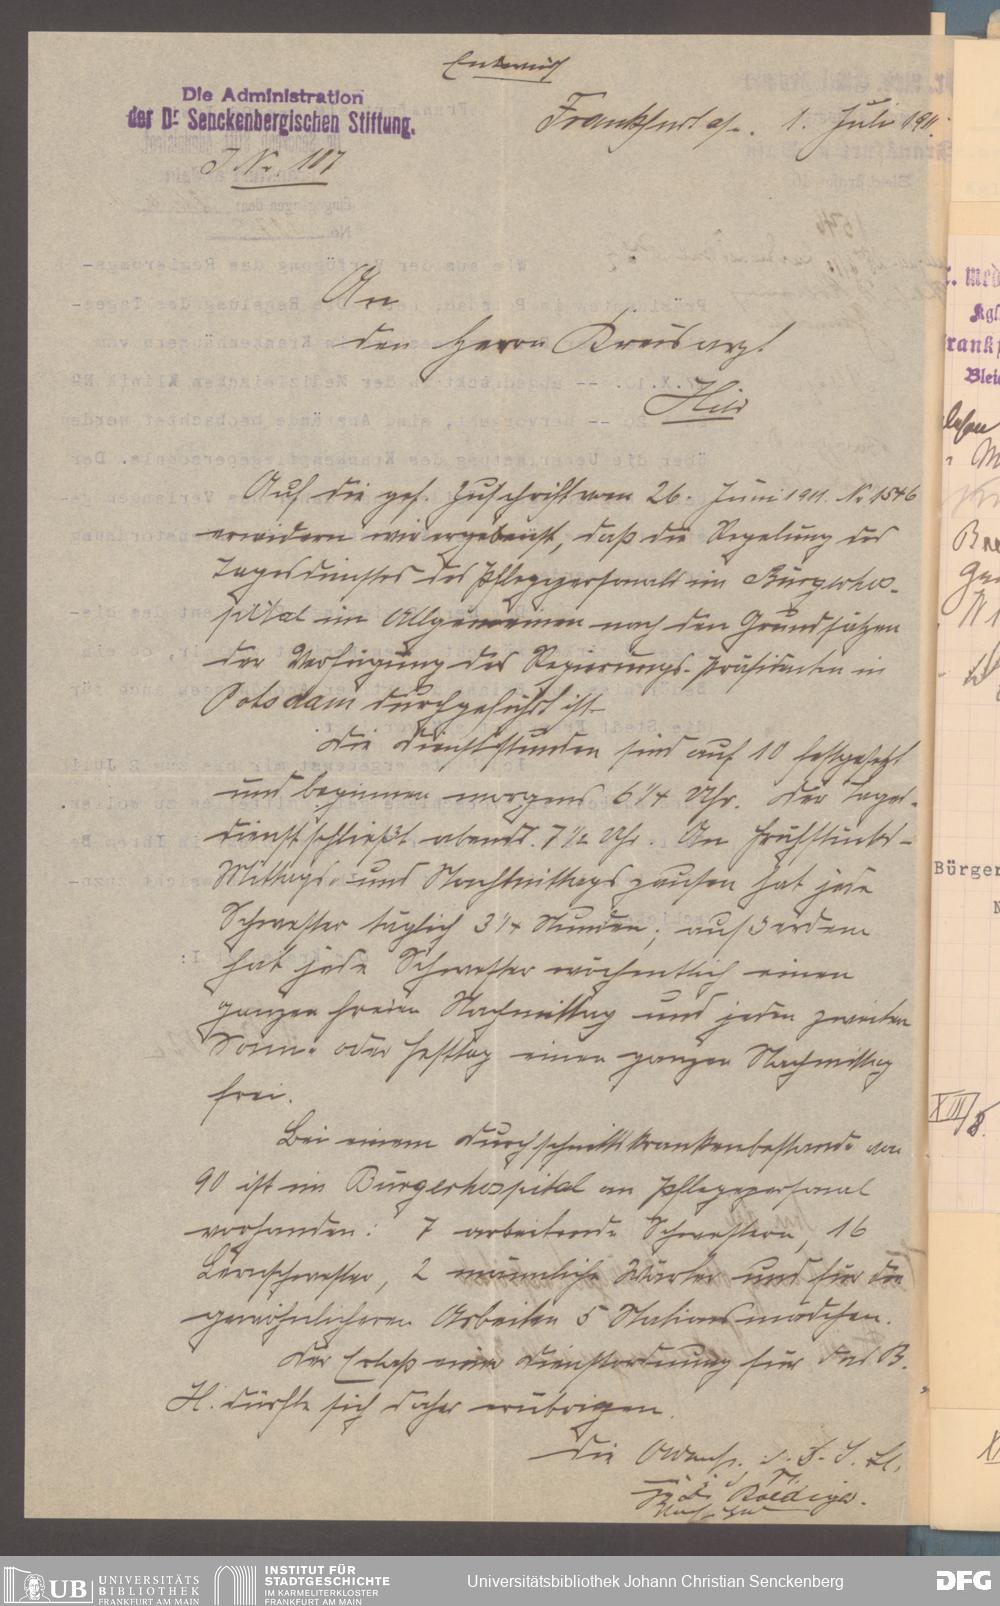 Entwurf
Die Administration
der Dr Senckenbergischen Stiftung.
J. Nr. 187
Frankfurt a/M. 1. Juli 1911.
An
den Herrn Kreisarzt
Hier
Auf die gef. Zuschrift vom 26. Juni 1911. No 1546
erwidern wir ergebenst, daß die Regelung des
Tagesdienstes des Pflegepersonals im Bürgerhos-
pital im Allgemeinen nach den Grundsätzen
der Verfügung des Regierungs-Präsidenten in
Potsdam durchgeführt ist.
Die Dienststunden sind auf 10 festgesetzt
und beginnen morgens 6 1/4 Uhr. Der Tages-
dienst schließt abends 7 1/2 Uhr. An Frühstücks-
Mittags- und Nachmittagspausen hat jede
Schwester täglich 3 1/4 Stunden; außerdem
hat jede Schwester wöchentlich einen
ganzen freien Nachmittag und jeden zweiten
Sonn- oder Festtag einen ganzen Nachmittag
frei.
Bei einem Durchschnittskrankenbestande von
90 ist im Bürgerhospital an Pflegepersonal
vorhanden: 7 arbeitende Schwestern, 16
Lernschwester, 2 männliche Wärter und für die
gewöhnlicheren Arbeiten 5 Stationsmädchen.
Der Erlaß einer Dienstordnung für das B.
H. dürfte sich daher erübrigen.
Die Roediger.
Bürger
XIII/8.
UB UNIVERSITÄTS
BIBLIOTHEK
FRANKFURT AM MAIN
INSTITUT FÜR
STADTGESCHICHTE
IM KARMELITERKLOSTER
FRANKFURT AM MAIN
Universitätsbibliothek Johann Christian Senckenberg
DFG